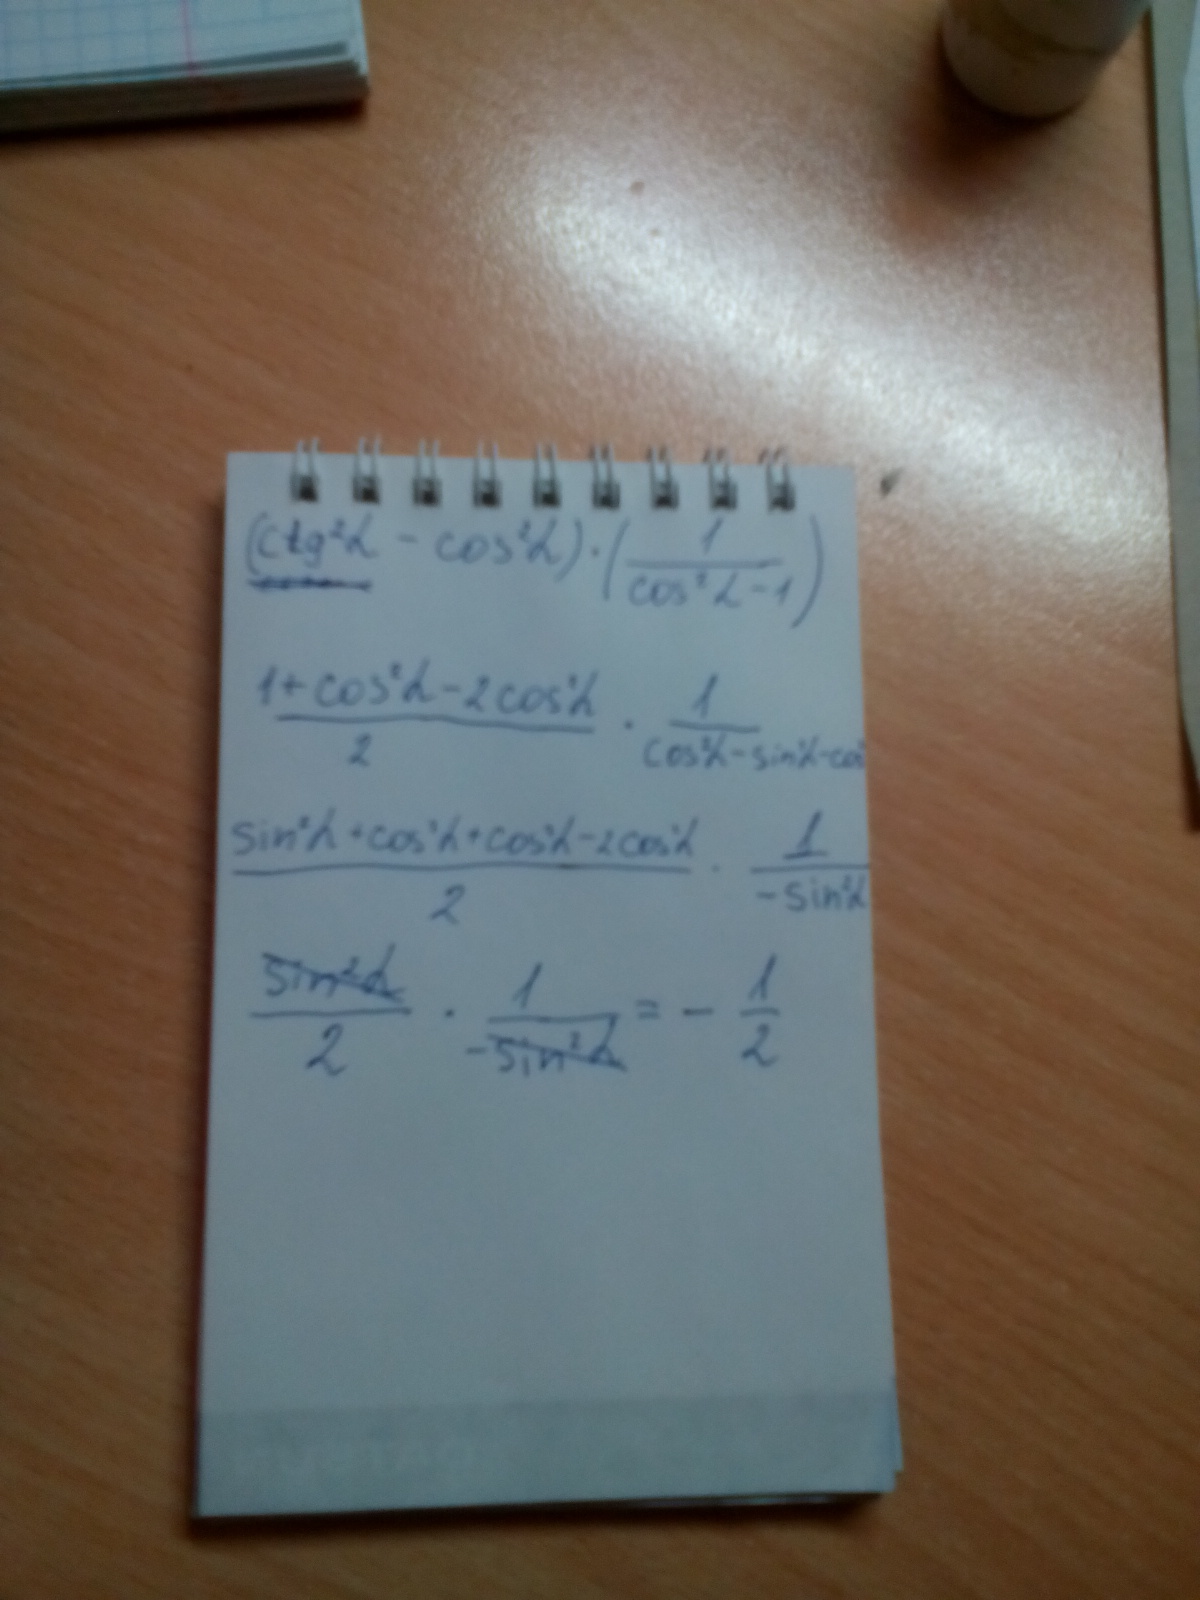 (ctg²α - cos²α) · (1/(cos²α - 1))
(1 + cos²α - 2cos²α)/2 · 1/(cos²α - sin²α - cos²
(sin²α + cos²α + cos²α - 2cos²α)/2 · 1/(-sin²α)
sin²α/2 · 1/(-sin²α) = - 1/2